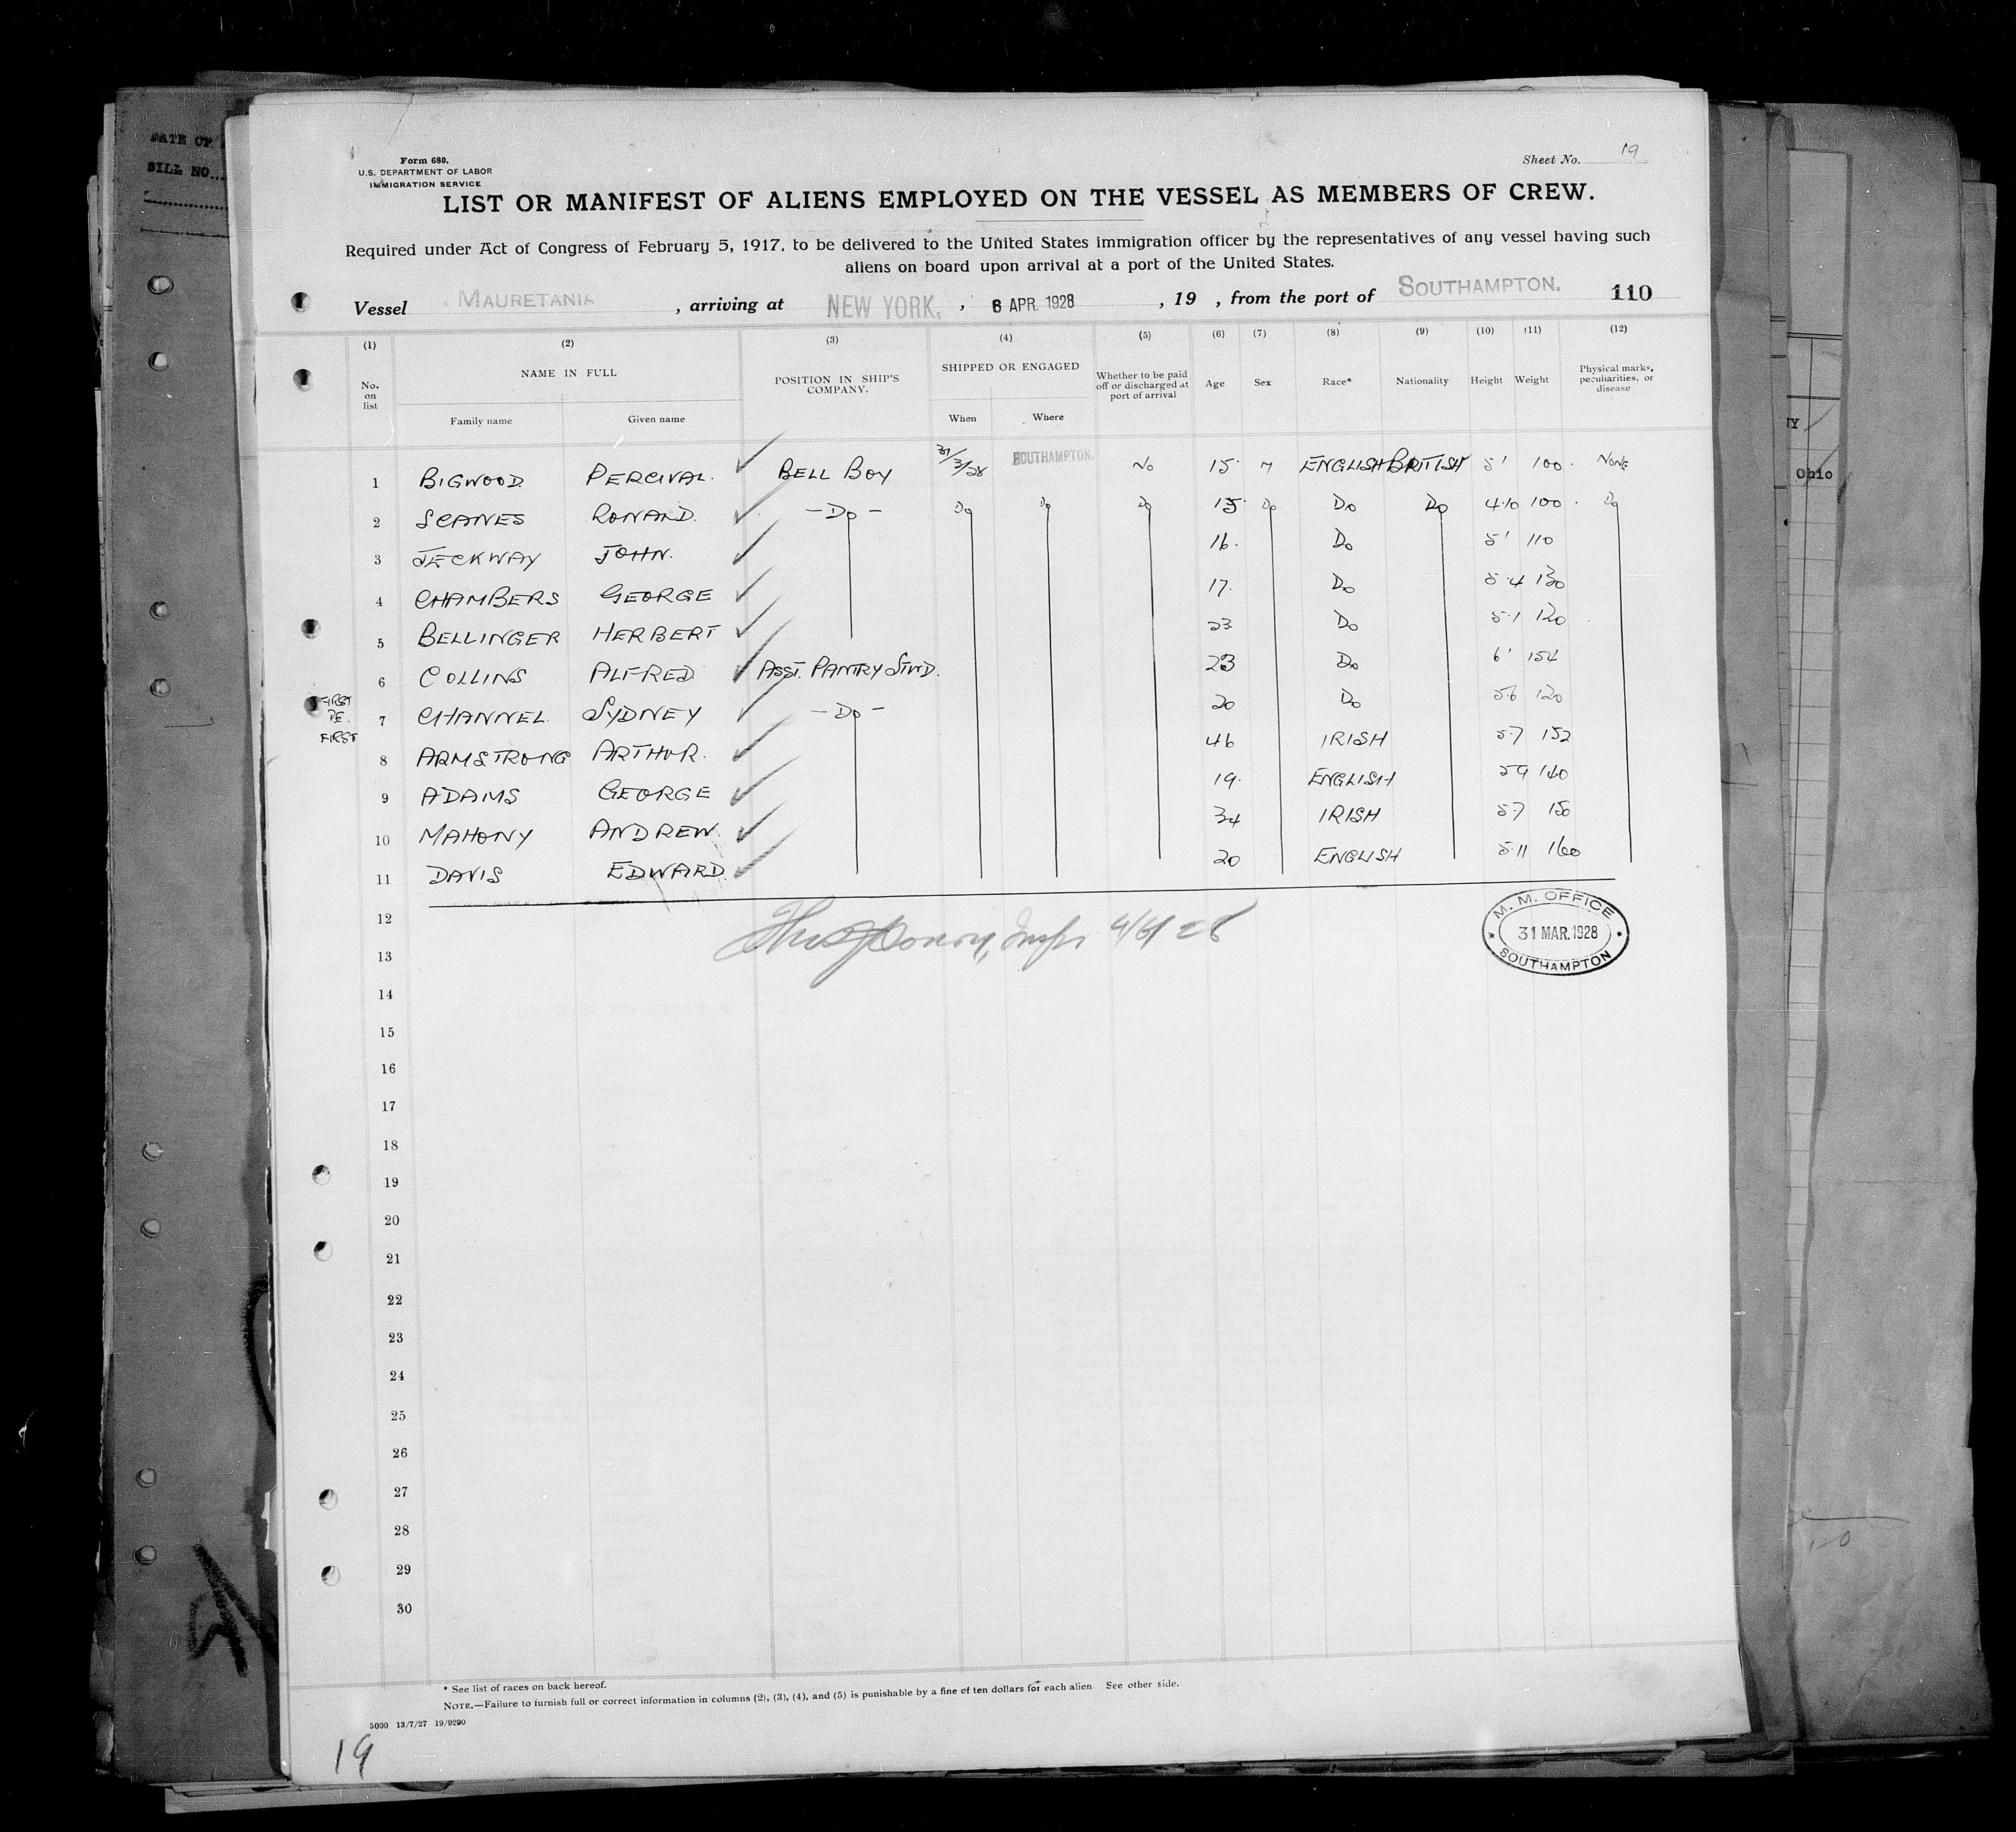 DATE OF
BILL NO...
Form 680.
U.S. DEPARTMENT OF LABOR
IMMIGRATION SERVICE
Sheet No. 19
LIST OR MANIFEST OF ALIENS EMPLOYED ON THE VESSEL AS MEMBERS OF CREW.
Required under Act of Congress of February 5, 1917, to be delivered to the United States immigration officer by the representatives of any vessel having such
aliens on board upon arrival at a port of the United States.
Vessel MAURETANIA, arriving at NEW YORK, 6 APR. 1928, 19 , from the port of SOUTHAMPTON. 110
(1) (2) (3) (4) (5) (6) (7) (8) (9) (10) (11) (12)
No. on list NAME IN FULL POSITION IN SHIP'S COMPANY. SHIPPED OR ENGAGED Whether to be paid off or discharged at port of arrival Age Sex Race* Nationality Height Weight Physical marks, peculiarities, or disease
Family name Given name When Where
1 BIGWOOD PERCIVAL. BELL BOY 31/3/28 SOUTHAMPTON. No 15 M ENGLISH BRITISH 5' 100. NONE
2 SCANES RONALD. -Do- Do Do Do 15 Do Do Do 4·10 100. Do
3 JECKWAY JOHN. 16. Do 5' 110
4 CHAMBERS GEORGE 17. Do 5·4 130
5 BELLINGER HERBERT 23 Do 5·1 120
6 COLLINS ALFRED ASST. PANTRY STWD. 23 Do 6' 154
7 CHANNEL SYDNEY -Do- 20 Do 5·6 120
FIRST
PE.
FIRST
8 ARMSTRONG ARTHUR. 46 IRISH 5·7 152
9 ADAMS GEORGE 19. ENGLISH 5·9 140
10 MAHONY ANDREW. 34 IRISH 5·7 150
11 DAVIS EDWARD. 20 ENGLISH 5·11 160
12
13
M. M. OFFICE
31 MAR. 1928
SOUTHAMPTON
14
15
16
17
18
19
20
21
22
23
24
25
26
27
28
29
30
* See list of races on back hereof.
NOTE.—Failure to furnish full or correct information in columns (2), (3), (4), and (5) is punishable by a fine of ten dollars for each alien. See other side.
5000 13/7/27 19/9290
19
Ohio